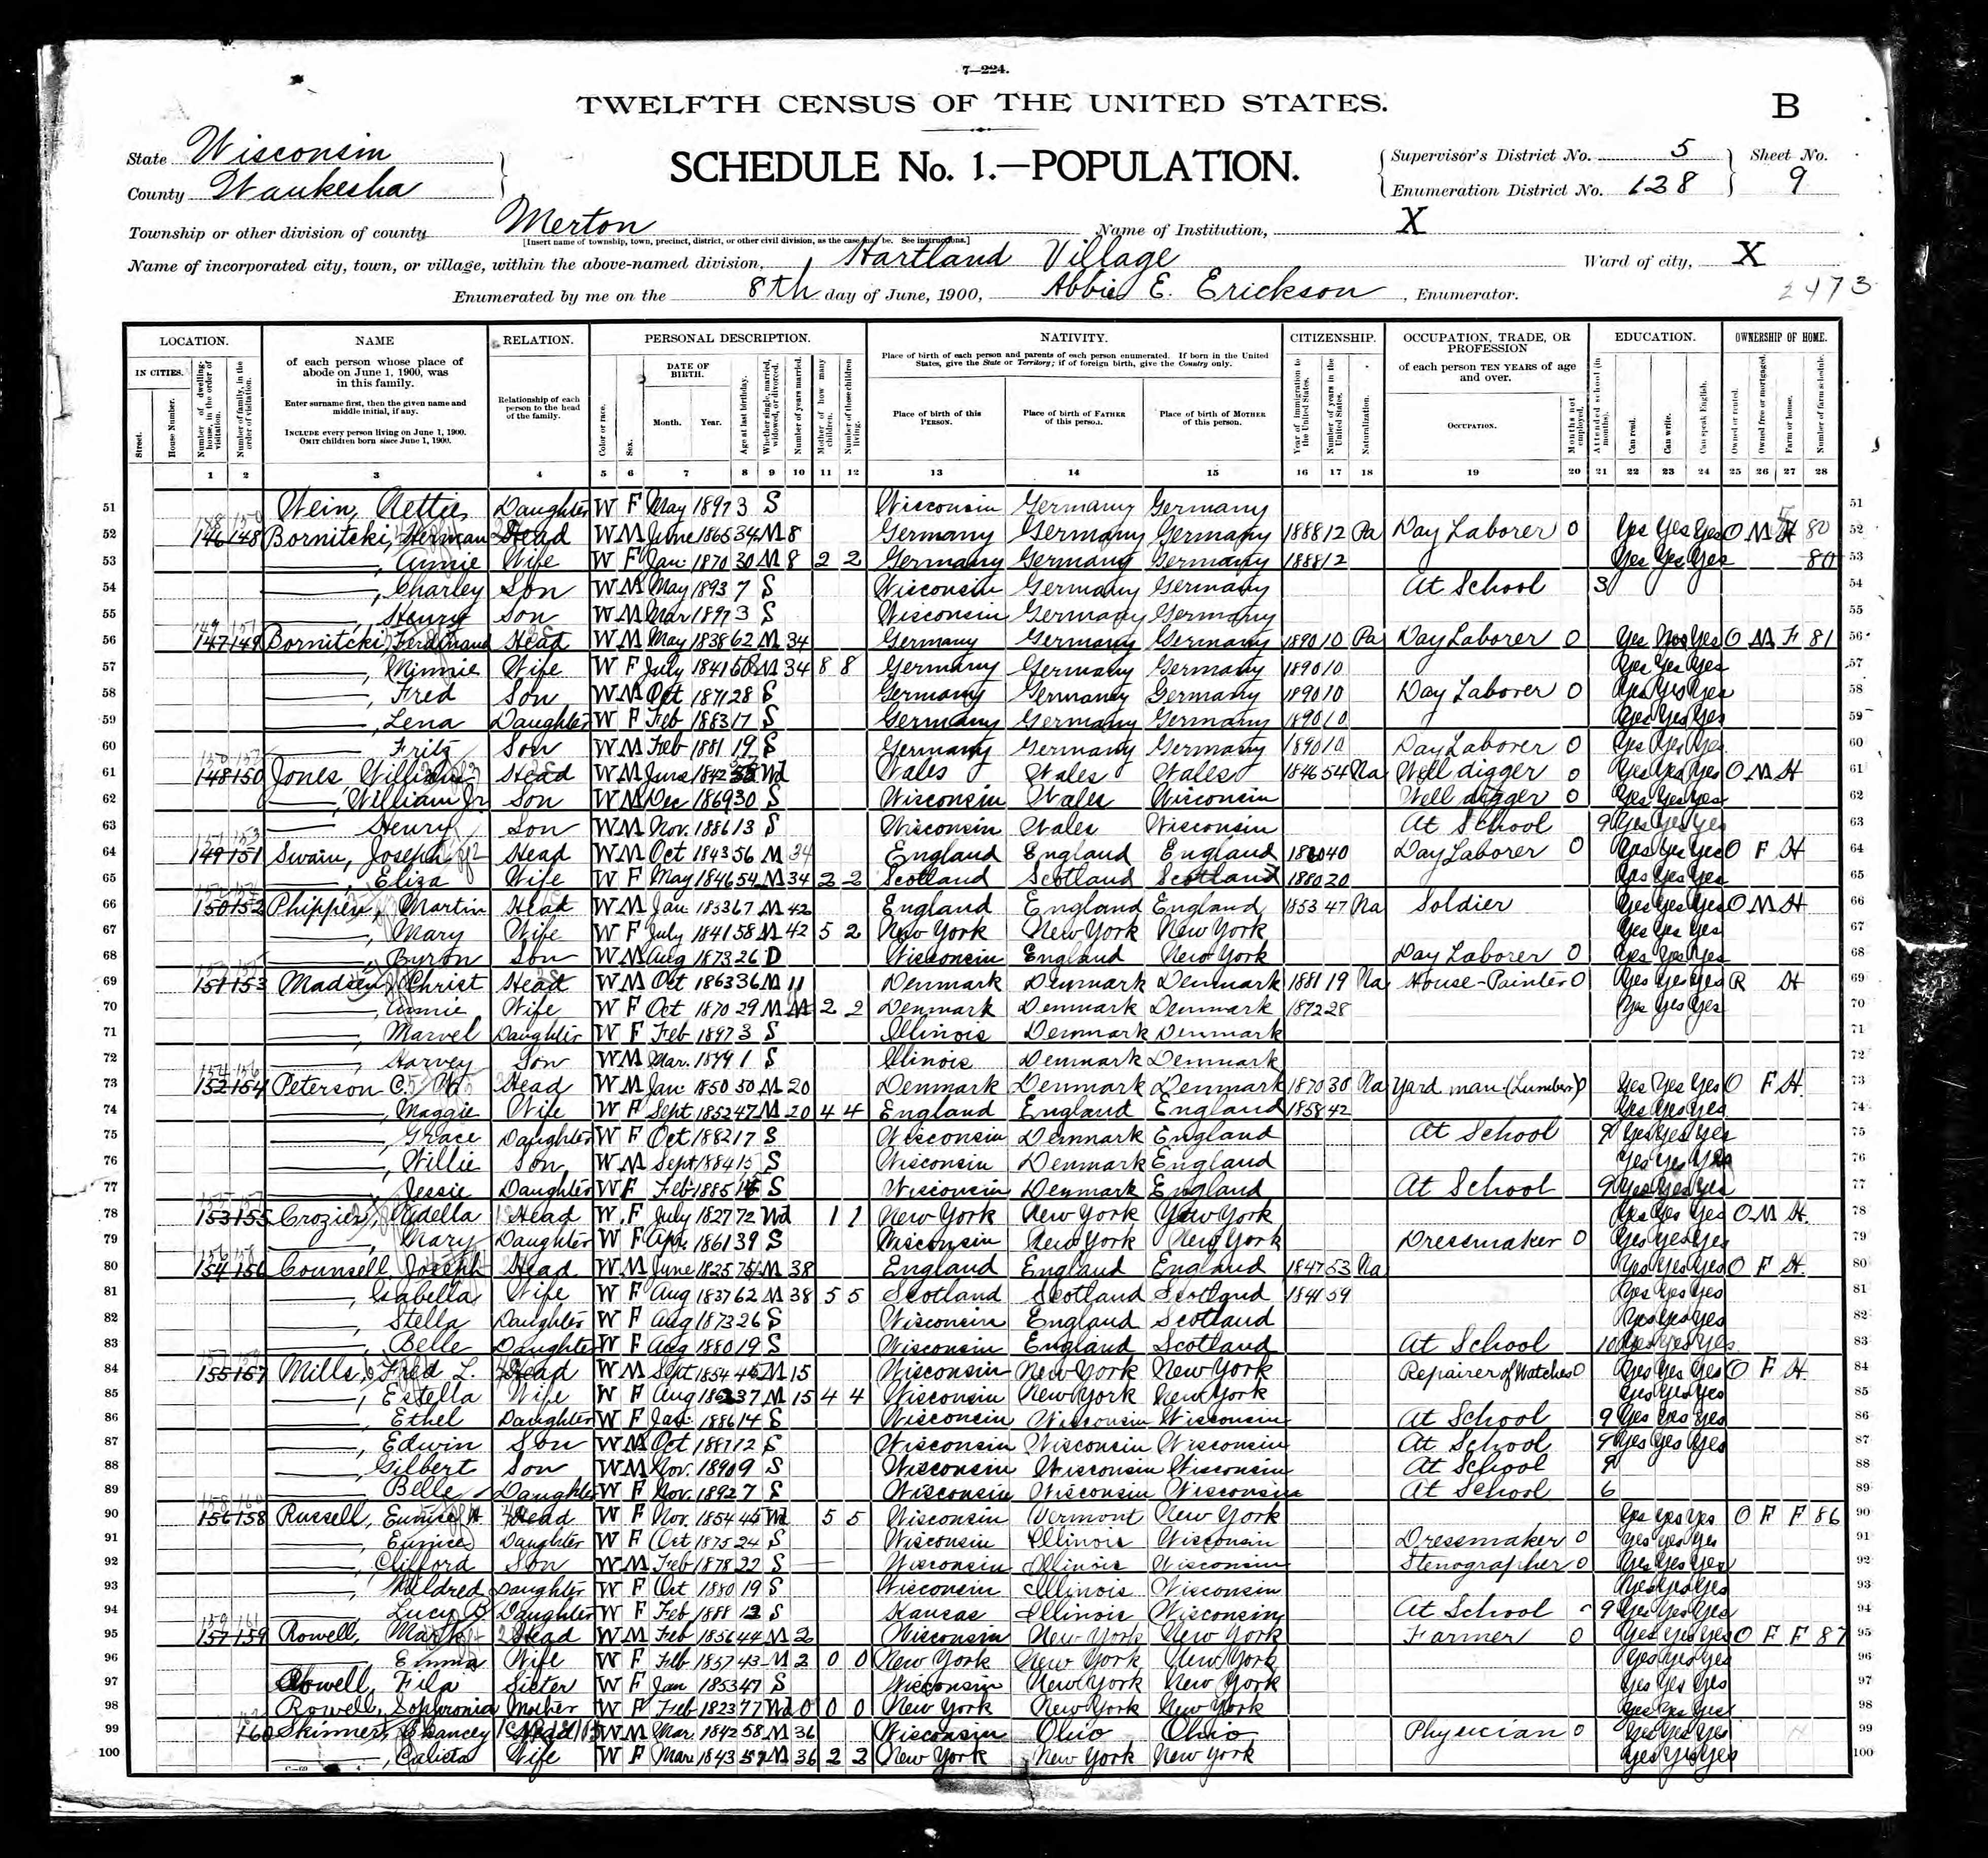 7—224.
TWELFTH CENSUS OF THE UNITED STATES.
B
State Wisconsin
County Waukesha
SCHEDULE No. 1.—POPULATION.
Supervisor's District No. 5 Sheet No.
Enumeration District No. 128 9
Township or other division of county Merton Name of Institution, X
[Insert name of township, town, precinct, district, or other civil division, as the case may be. See instructions.]
Name of incorporated city, town, or village, within the above-named division, Hartland Village Ward of city, X
Enumerated by me on the 8th day of June, 1900, Abbie E. Erickson, Enumerator.
2473
LOCATION. NAME RELATION. PERSONAL DESCRIPTION. NATIVITY. CITIZENSHIP. OCCUPATION, TRADE, OR PROFESSION EDUCATION. OWNERSHIP OF HOME.
IN CITIES. Street. House Number. Number of dwelling-house, in the order of visitation. Number of family, in the order of visitation.
of each person whose place of abode on June 1, 1900, was in this family.
Enter surname first, then the given name and middle initial, if any.
INCLUDE every person living on June 1, 1900. OMIT children born since June 1, 1900.
Relationship of each person to the head of the family.
Color or race. Sex. DATE OF BIRTH. Month. Year. Age at last birthday. Whether single, married, widowed, or divorced. Number of years married. Mother of how many children. Number of these children living.
Place of birth of each person and parents of each person enumerated. If born in the United States, give the State or Territory; if of foreign birth, give the Country only.
Place of birth of this PERSON. Place of birth of FATHER of this person. Place of birth of MOTHER of this person.
Year of immigration to the United States. Number of years in the United States. Naturalization.
of each person TEN YEARS of age and over. OCCUPATION. Months not employed.
Attended school (in months). Can read. Can write. Can speak English.
Owned or rented. Owned free or mortgaged. Farm or house. Number of farm schedule.
1 2 3 4 5 6 7 8 9 10 11 12 13 14 15 16 17 18 19 20 21 22 23 24 25 26 27 28
51 Wein, Nettie Daughter W F May 1897 3 S Wisconsin Germany Germany 51
52 146 148 Bornitcki, Herman Head W M June 1865 34 M 8 Germany Germany Germany 1888 12 Pa Day Laborer 0 Yes Yes Yes O M H 80 52
53 ——, Annie Wife W F Jan 1870 30 M 8 2 2 Germany Germany Germany 1888 12 Yes Yes Yes 80 53
54 ——, Charley Son W M May 1893 7 S Wisconsin Germany Germany At School 3 54
55 ——, Henry Son W M Mar 1897 3 S Wisconsin Germany Germany 55
56 147 149 Bornitcki, Ferdinand Head W M May 1838 62 M 34 Germany Germany Germany 1890 10 Pa Day Laborer 0 Yes Yes O M F 81 56
57 ——, Minnie Wife W F July 1841 58 M 34 8 8 Germany Germany Germany 1890 10 Yes Yes Yes 57
58 ——, Fred Son W M Oct 1871 28 S Germany Germany Germany 1890 10 Day Laborer 0 Yes Yes Yes 58
59 ——, Lena Daughter W F Feb 1883 17 S Germany Germany Germany 1890 10 Yes Yes Yes 59
60 ——, Fritz Son W M Feb 1881 19 S Germany Germany Germany 1890 10 Day Laborer 0 Yes Yes Yes 60
61 148 150 Jones, William Head W M June 1842 Wd Wales Wales Wales 1846 54 Na Well digger 0 Yes Yes Yes O M H 61
62 ——, William Jr Son W M Dec 1869 30 S Wisconsin Wales Wisconsin Well digger 0 Yes Yes Yes 62
63 —— Henry Son W M Nov. 1886 13 S Wisconsin Wales Wisconsin At School 9 Yes Yes Yes 63
64 149 151 Swain, Joseph Head W M Oct 1843 56 M 34 England England England 1860 40 Day Laborer 0 Yes Yes Yes O F H 64
65 ——, Eliza Wife W F May 1846 54 M 34 2 2 Scotland Scotland Scotland 1880 20 Yes Yes Yes 65
66 150 152 Phippen, Martin Head W M Jan 1833 67 M 42 England England England 1853 47 Na Soldier Yes Yes Yes O M H 66
67 ——, Mary Wife W F July 1841 58 M 42 5 2 New York New York New York Yes Yes Yes 67
68 ——, Byron Son W M Aug 1873 26 D Wisconsin England New York Day Laborer 0 Yes Yes Yes 68
69 151 153 Madsen, Christ Head W M Oct 1863 36 M 11 Denmark Denmark Denmark 1881 19 Na House-Painter 0 Yes Yes Yes R H 69
70 ——, Annie Wife W F Oct 1870 29 M 11 2 2 Denmark Denmark Denmark 1872 28 Yes Yes Yes 70
71 ——, Marvel Daughter W F Feb 1897 3 S Illinois Denmark Denmark 71
72 ——, Harvey Son W M Mar. 1899 1 S Illinois Denmark Denmark 72
73 152 154 Peterson C. Head W M Jan 1850 50 M 20 Denmark Denmark Denmark 1870 30 Na Yard man (Lumber) 0 Yes Yes Yes O F H. 73
74 ——, Maggie Wife W F Sept 1852 47 M 20 4 4 England England England 1858 42 Yes Yes Yes 74
75 ——, Grace Daughter W F Oct 1882 17 S Wisconsin Denmark England At School 9 Yes Yes Yes 75
76 ——, Willie Son W M Sept 1884 15 S Wisconsin Denmark England Yes Yes Yes 76
77 ——, Jessie Daughter W F Feb 1885 15 S Wisconsin Denmark England At School 9 Yes Yes Yes 77
78 153 155 Crozier, Adella Head W F July 1827 72 Wd 1 1 New York New York New York Yes Yes Yes O M H. 78
79 ——, Mary Daughter W F Apr. 1861 39 S Wisconsin New York New York Dressmaker 0 Yes Yes Yes 79
80 154 156 Counsell Joseph Head W M June 1825 M 38 England England England 1847 53 Na Yes Yes Yes O F H. 80
81 ——, Isabella Wife W F Aug 1837 62 M 38 5 5 Scotland Scotland Scotland 1841 59 Yes Yes Yes 81
82 ——, Stella Daughter W F Aug 1873 26 S Wisconsin England Scotland Yes Yes Yes 82
83 ——, Belle Daughter W F Aug 1880 19 S Wisconsin England Scotland At School 10 Yes Yes Yes 83
84 155 157 Mills, Fred L. Head W M Sept 1854 45 M 15 Wisconsin New York New York Repairer of Watches 0 Yes Yes Yes O F H. 84
85 ——, Estella Wife W F Aug 37 M 15 4 4 Wisconsin New York New York Yes Yes Yes 85
86 ——, Ethel Daughter W F Jan. 1886 14 S Wisconsin Wisconsin Wisconsin At School 9 Yes Yes Yes 86
87 ——, Edwin Son W M Oct 1887 12 S Wisconsin Wisconsin Wisconsin At School 9 Yes Yes Yes 87
88 ——, Gilbert Son W M Nov. 1890 9 S Wisconsin Wisconsin Wisconsin At School 9 88
89 ——, Belle Daughter W F Nov. 1892 7 S Wisconsin Wisconsin Wisconsin At School 6 89
90 156 158 Russell, Eunice H. Head W F Nov. 1854 45 Wd 5 5 Wisconsin Vermont New York Yes Yes Yes O F F 86 90
91 ——, Eunice Daughter W F Oct 1875 24 S Wisconsin Illinois Wisconsin Dressmaker 0 Yes Yes Yes 91
92 ——, Clifford Son W M Feb 1878 22 S Wisconsin Illinois Wisconsin Stenographer 0 Yes Yes Yes 92
93 ——, Mildred Daughter W F Oct 1880 19 S Wisconsin Illinois Wisconsin Yes Yes Yes 93
94 ——, Lucy B Daughter W F Feb 1888 12 S Kansas Illinois Wisconsin At School 9 Yes Yes Yes 94
95 157 159 Rowell, Head W M Feb 1856 44 M 2 Wisconsin New York New York Farmer 0 Yes Yes Yes O F F 87 95
96 ——, Emma Wife W F Feb 1857 43 M 2 0 0 New York New York New York Yes Yes Yes 96
97 Rowell, Fila Sister W F Jan 1853 47 S Wisconsin New York New York Yes Yes Yes 97
98 Rowell, Sophronia Mother W F Feb 1823 77 Wd 0 0 0 New York New York New York Yes Yes Yes 98
99 160 Skinner, Chancey Head W M Mar. 1842 58 M 36 Wisconsin Ohio Ohio Physician 0 Yes Yes Yes 99
100 ——, Calista Wife W F Mar 1843 57 M 36 2 2 New York New York New York Yes Yes Yes 100